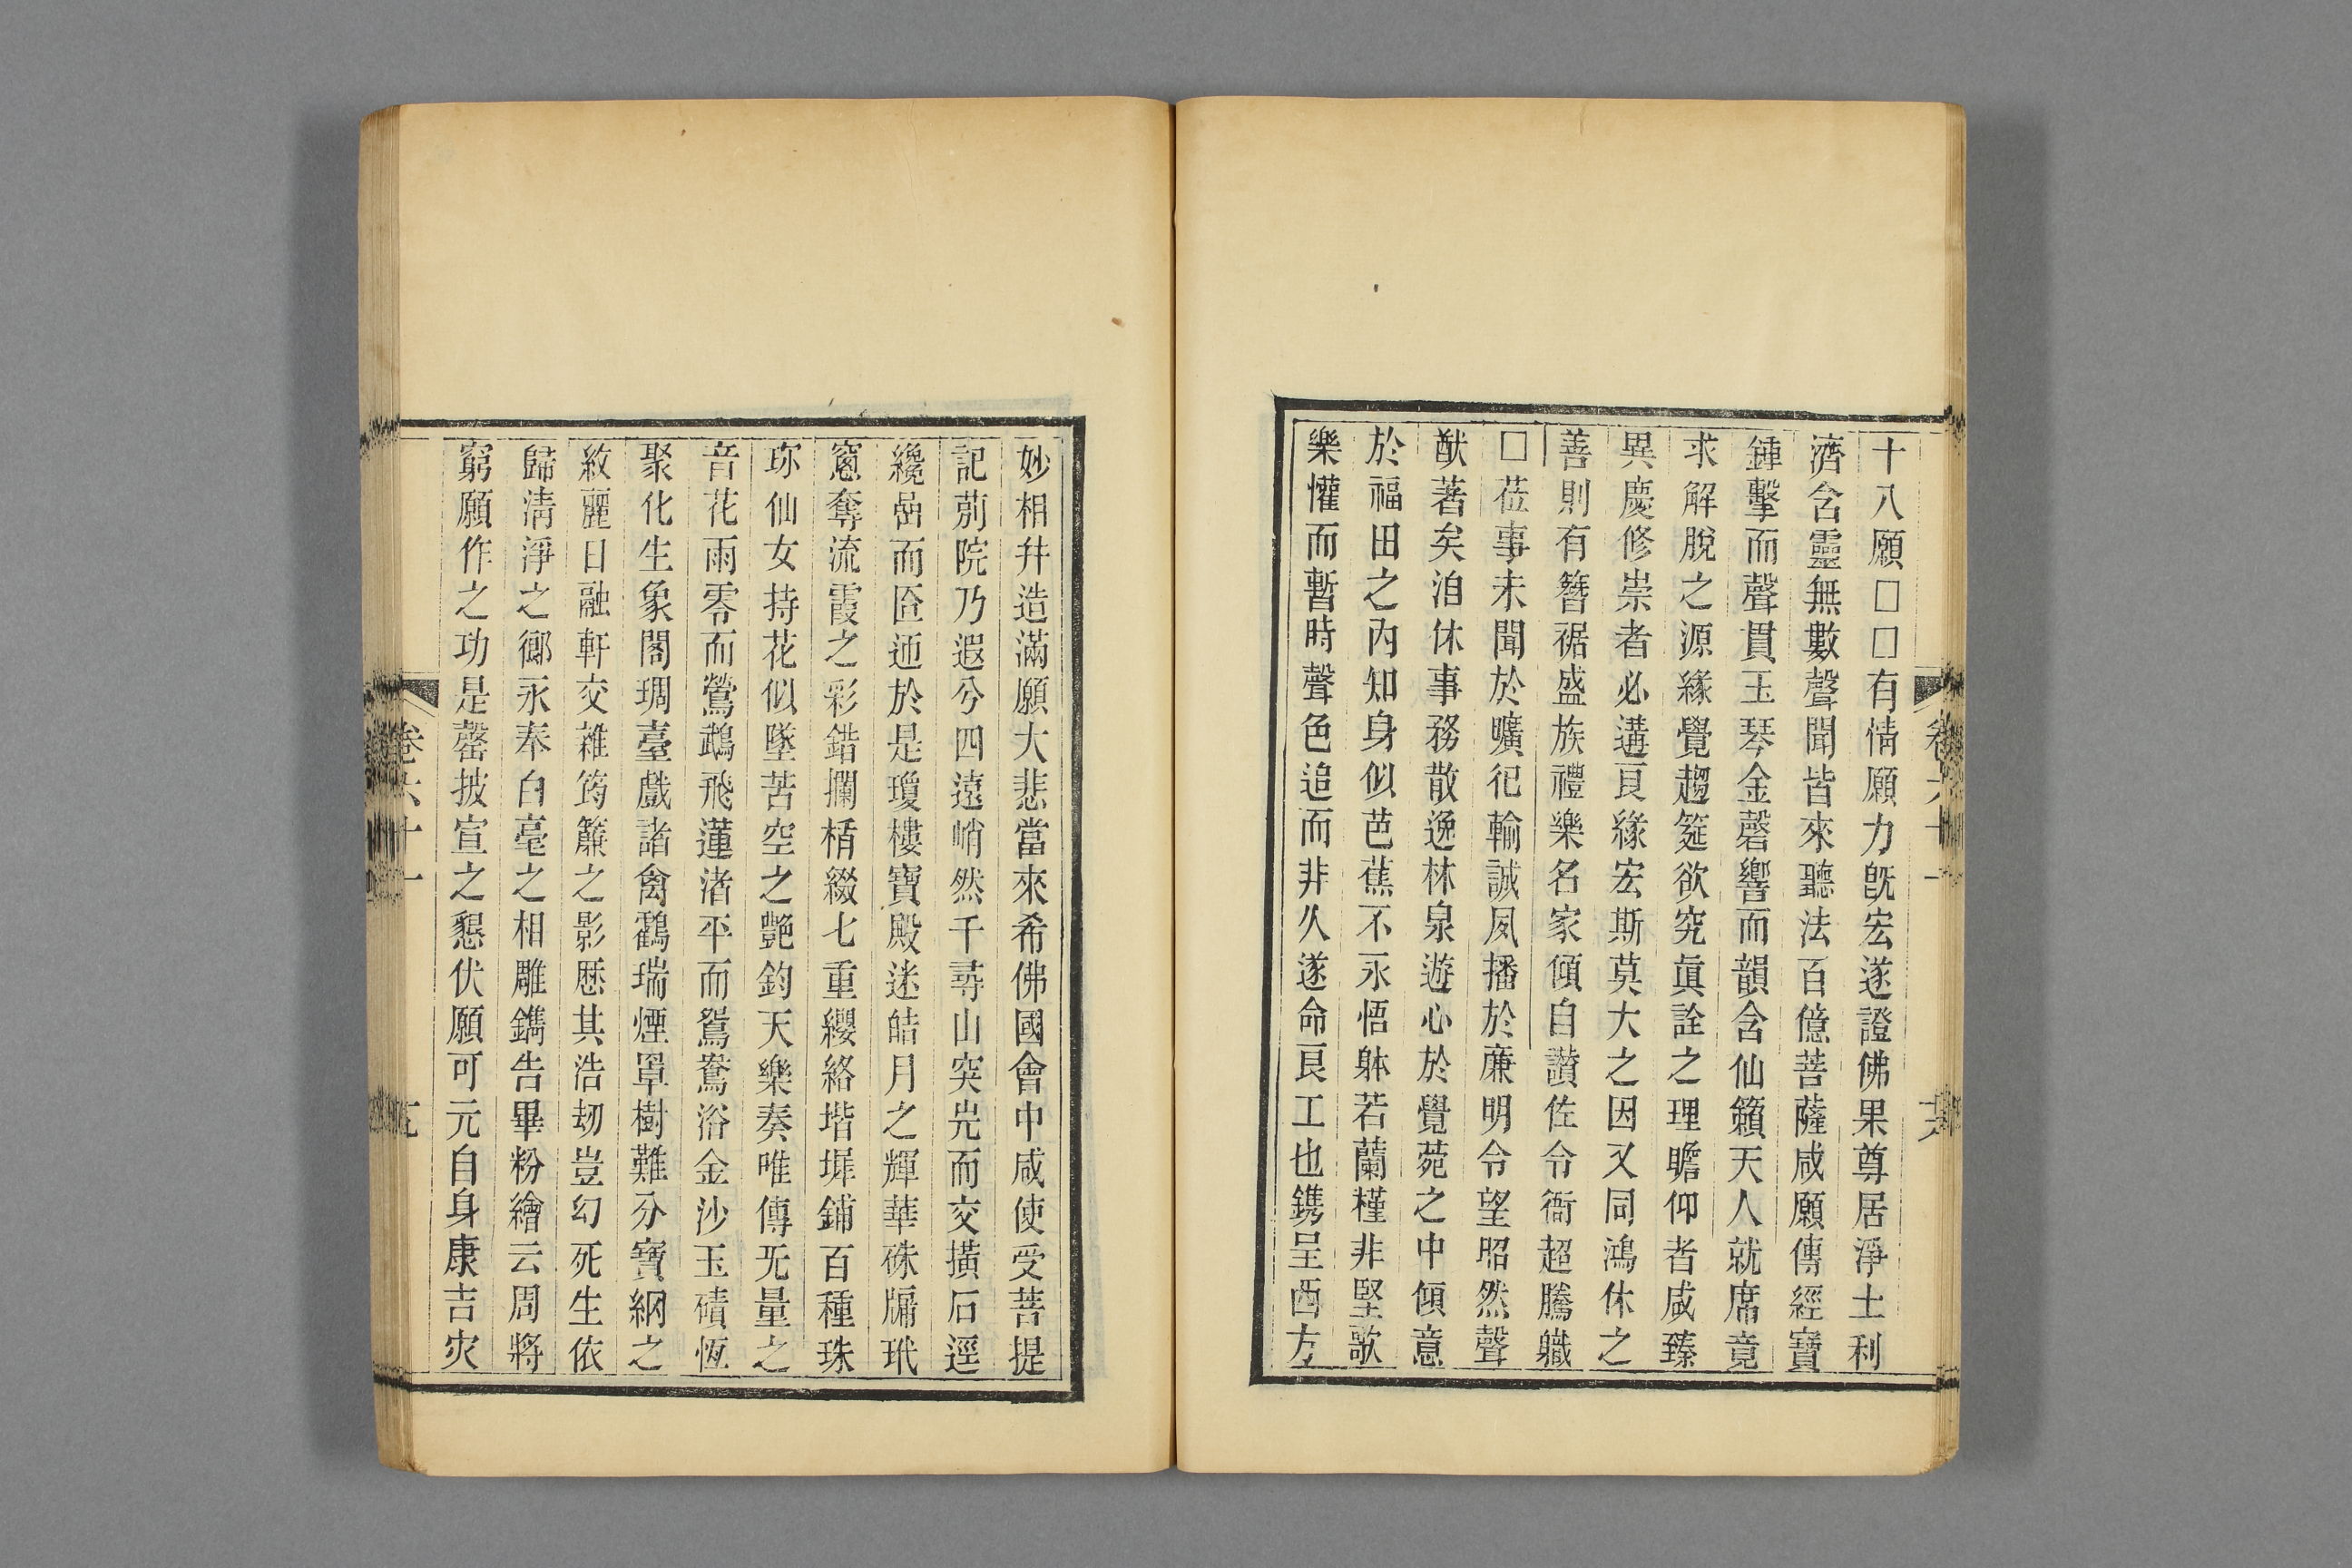 十八願□□有情願力旣宏遂證佛果尊居淨土利
濟含靈無數聲聞皆來聽法百億菩薩咸願傳經寶
鍾擊而聲貫玉琴金磬響而韻含仙籟天人就席竟
求解脫之源緣覺趨筵欲究眞詮之理瞻仰者咸臻
異慶修崇者必遘良緣宏斯莫大之因又同鴻休之
善則有簪裾盛族禮樂名家傾自讃佐令衙超騰職
□莅事未聞於曠祀輸誠夙播於廉明令望昭然聲
猷著矣洎休事務散逸林泉遊心於覺菀之中傾意
於福田之內知身似芭蕉不永悟躰若蘭槿非堅歌
樂懽而暫時聲色追而非久遂命良工也鐫呈西方
卷六十一
十六
妙相幷造滿願大悲當來希佛國會中咸使受菩提
記荊院乃遐兮四遠峭然千尋山突兀而交橫石逕
纔嵒而匼迊於是瓊樓寶殿迷皓月之輝華硃牖玳
窻奪流霞之彩錯攔楯綴七重纓絡堦墀鋪百種珠
珎仙女持花似墜苦空之艶鈞天樂奏唯傳旡量之
音花雨零而鶯鵡飛蓮渚平而鴛鴦浴金沙玉磧恆
聚化生象閣琱臺戲諸禽鸛瑞煙罩樹難分寶網之
紋麗日融軒交雜筠簾之影懸其浩刼豈幻死生依
歸清淨之鄉永奉白毫之相雕鐫告畢粉繪云周將
窮願作之功是罄披宣之懇伏願可元自身康吉灾
卷六十一